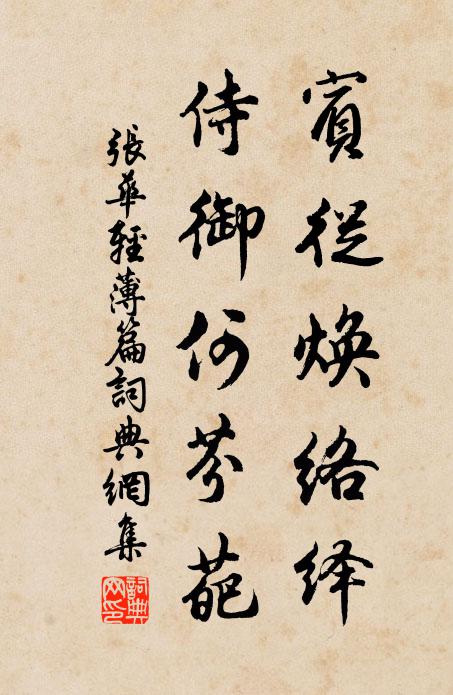 賓從煥絡绎
侍御何芬葩
張華輕薄篇詞典網集
詞典网印